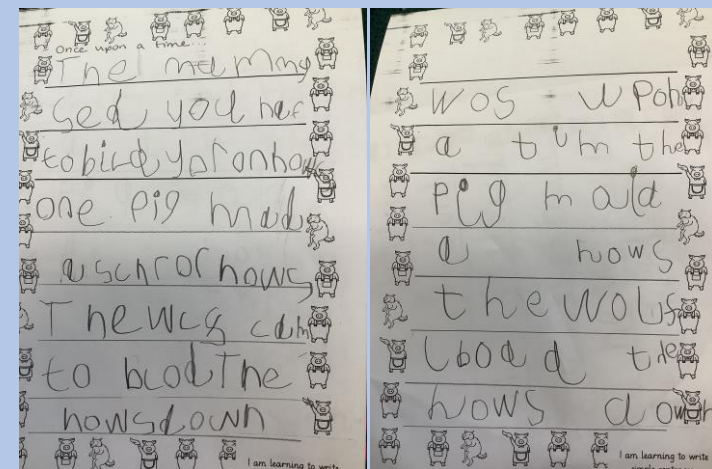 Once upon a time...
The mummy
sed you haf
to bird yor on how
one pig mad
a schror hows
The wcs cam
to blod The
hows down
I am learning to write
wos upon
a tim the
pig maid
a hows
the wolf
blood the
hows down
I am learning to write
simple sentences